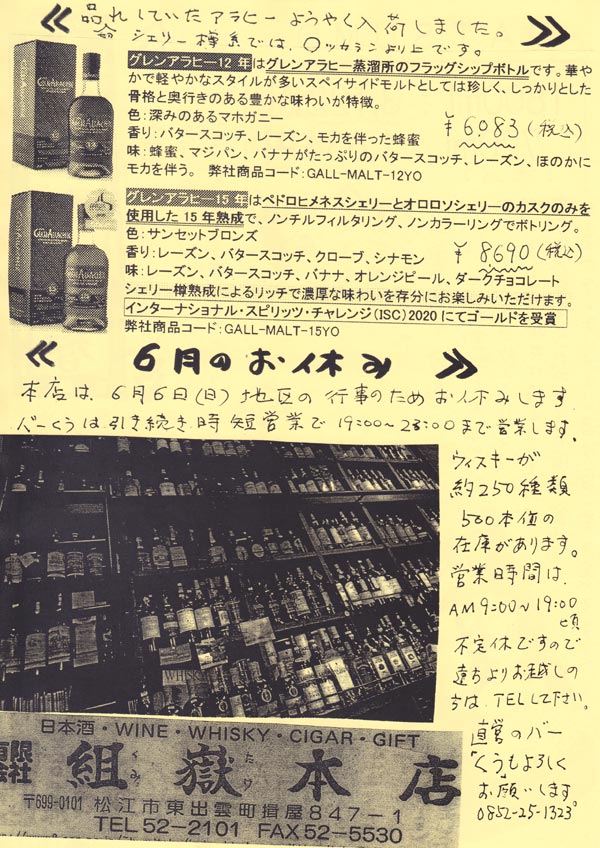 《 品切れしていたアラヒーようやく入荷しました。 》
シェリー樽系では、〇ッカランより上です。
グレンアラヒー12年はグレンアラヒー蒸溜所のフラッグシップボトルです。華や
かで軽やかなスタイルが多いスペイサイドモルトとしては珍しく、しっかりとした
骨格と奥行きのある豊かな味わいが特徴。
色：深みのあるマホガニー
香り：バタースコッチ、レーズン、モカを伴った蜂蜜
¥6083(税込)
味：蜂蜜、マジパン、バナナがたっぷりのバタースコッチ、レーズン、ほのかに
モカを伴う。 弊社商品コード：GALL-MALT-12YO
グレンアラヒー15年はペドロヒメネスシェリーとオロロソシェリーのカスクのみを
使用した15年熟成で、ノンチルフィルタリング、ノンカラーリングでボトリング。
色：サンセットブロンズ
香り：レーズン、バタースコッチ、クローブ、シナモン
¥8690(税込)
味：レーズン、バタースコッチ、バナナ、オレンジピール、ダークチョコレート
シェリー樽熟成によるリッチで濃厚な味わいを存分にお楽しみいただけます。
インターナショナル・スピリッツ・チャレンジ(ISC)2020にてゴールドを受賞
弊社商品コード：GALL-MALT-15YO
《 6月のお休み 》
本店は、6月6日(日)地区の行事のためお休みします
バーくうは引き続き時短営業で19:00～23:00まで営業します。
ウィスキーが
約250種類
500本位の
在庫があります。
営業時間は
AM9:00～19:00
頃
不定休ですので
遠ちよりお越しの
方は、TELして下さい。
直営のバー
「くう」もよろしく
お願いします
0852-25-1323
WHISKY
日本酒・WINE・WHISKY・CIGAR・GIFT
有限会社 組嶽本店
くみ たけ
〒699-0101 松江市東出雲町揖屋847-1
TEL 52-2101 FAX 52-5530